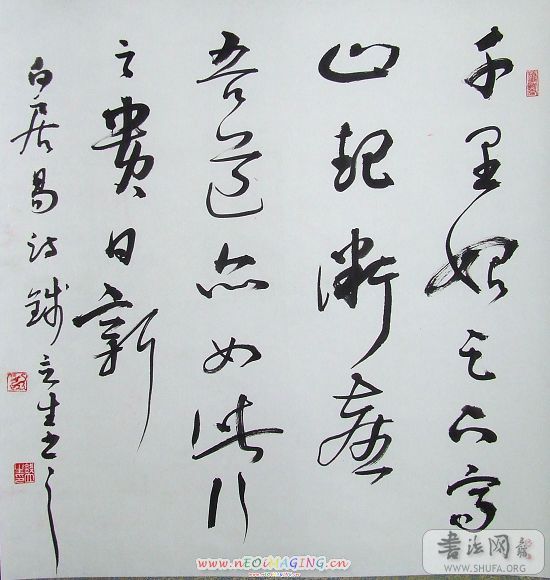 千里始足下高
山起微塵
吾道亦如此行
之貴日新
白居易詩錢立生书之
www.nEOiMAGING.cn
書法网
WWW.SHUFA.ORG